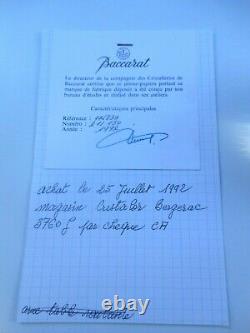 Baccarat
Le directeur de la compagnie des Cristalleries de
Baccarat certifie que ce presse-papiers portant sa
marque de fabrique déposée a été conçu par son
bureau d'études et réalisé dans ses ateliers.
Caractéristiques principales
Référence :
Numéro :
Année : 1992
achat le 25 Juillet 1992
magasin Bergerac
3760 f par cheque CA
avec table